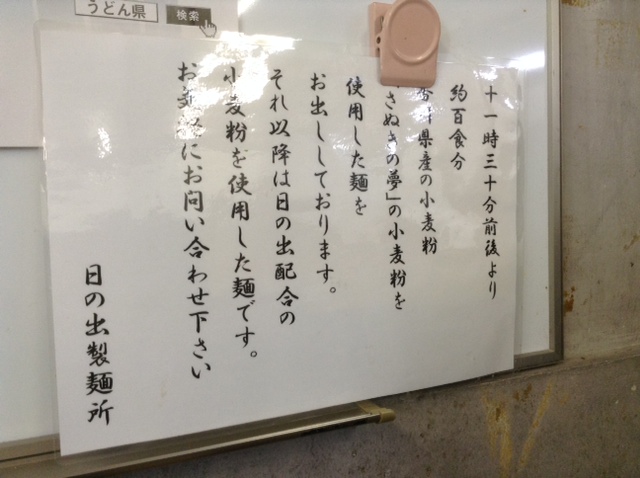 うどん県
検索
十一時三十分前後より
約百食分
香川県産の小麦粉
「さぬきの夢」の小麦粉を
使用した麺を
お出ししております。
それ以降は日の出配合の
小麦粉を使用した麺です。
お気軽にお問い合わせ下さい
日の出製麺所